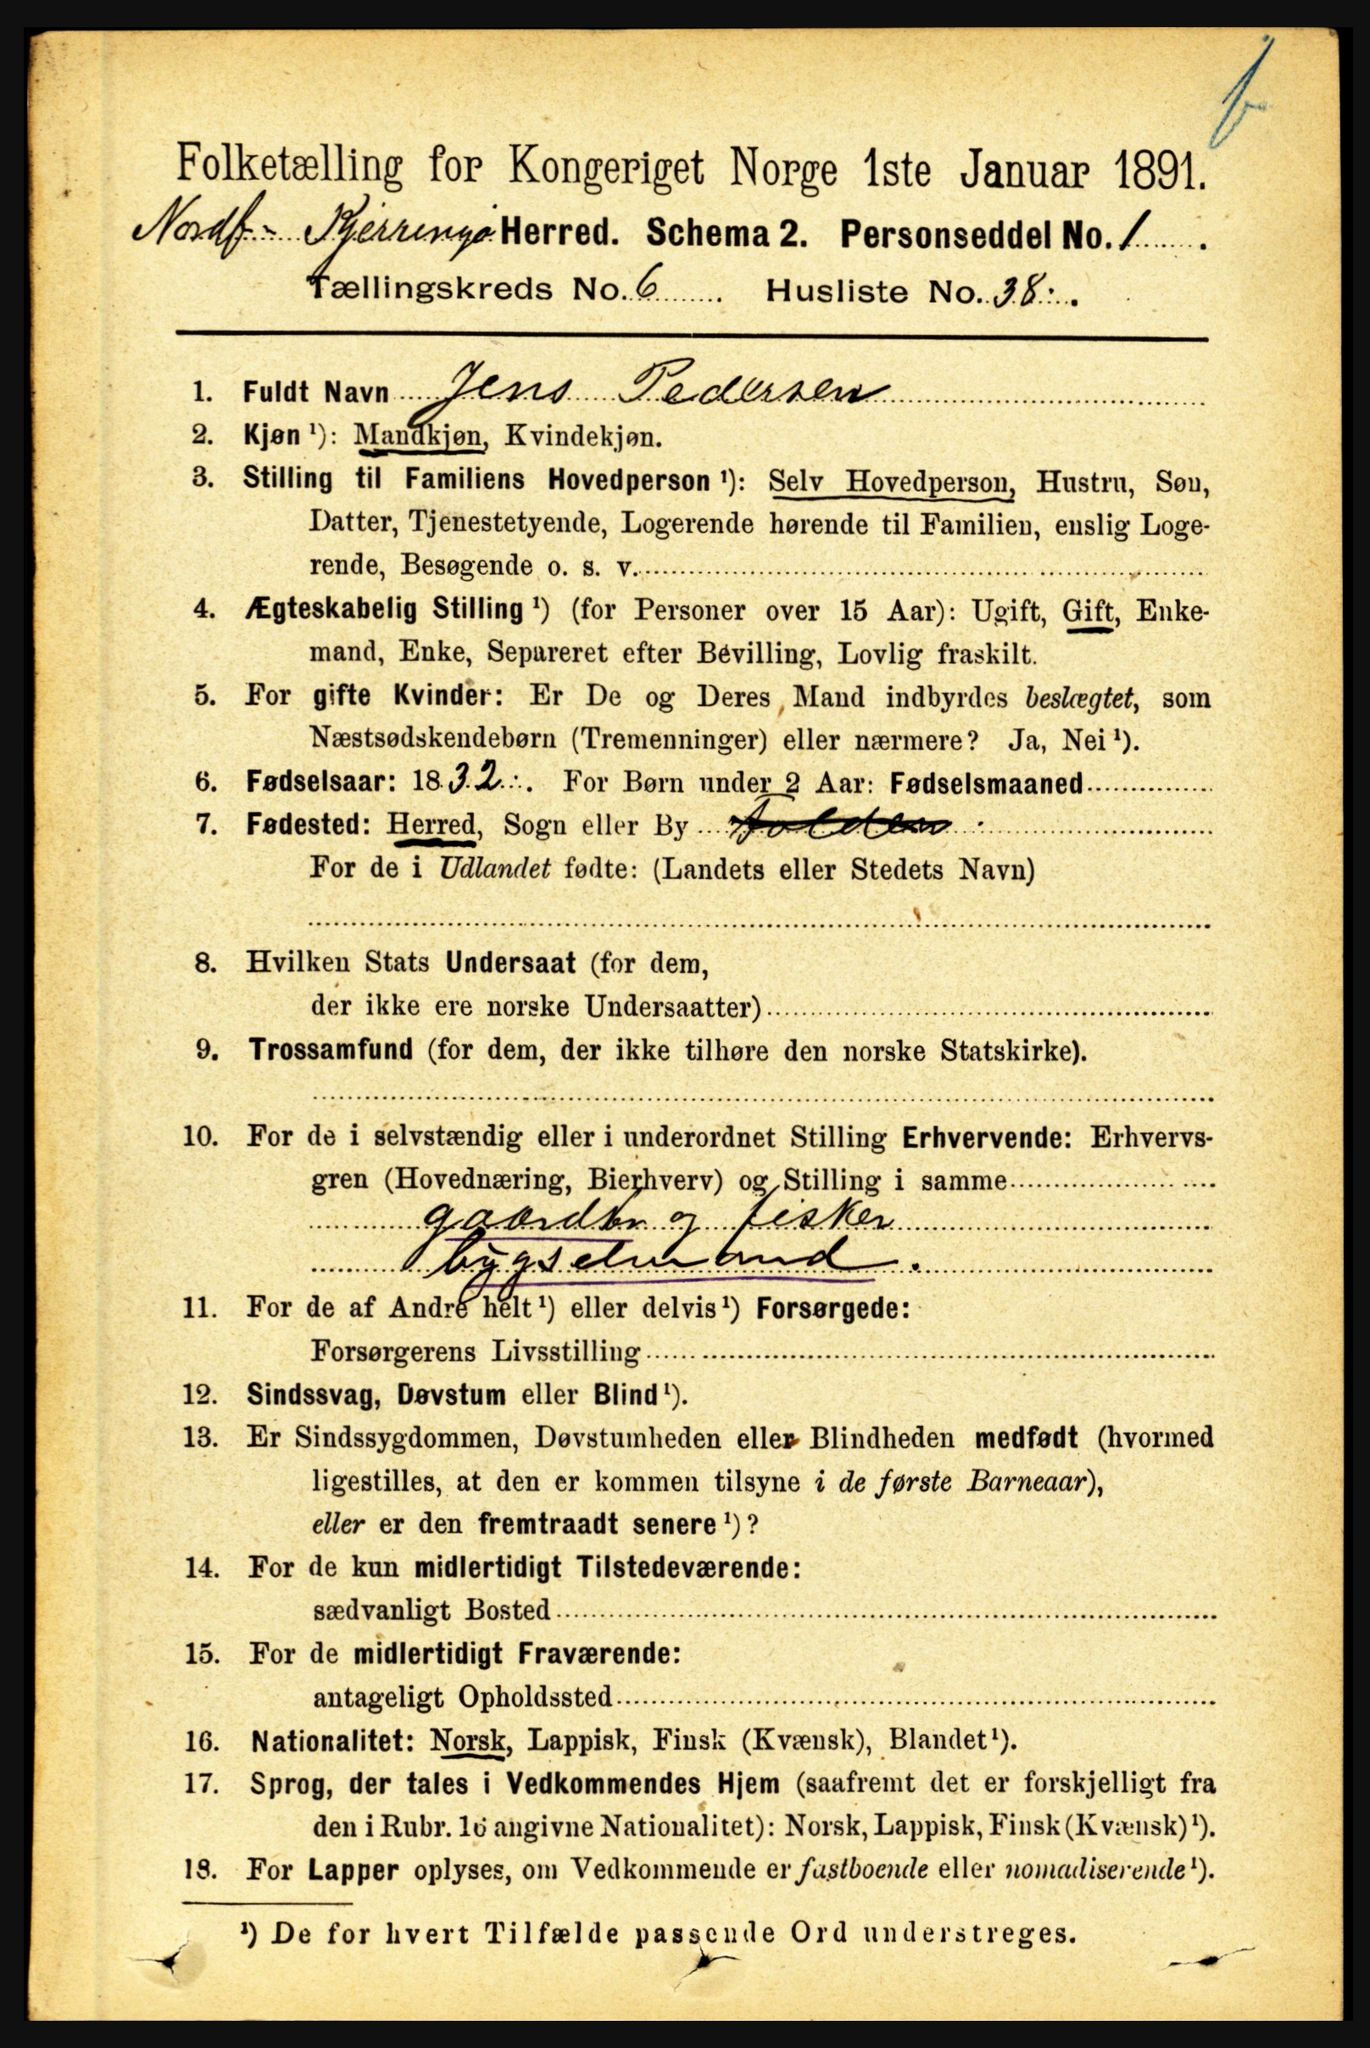 b
Folketælling for Kongeriget Norge 1ste Januar 1891.
Nordf.- Kjerringø Herred. Schema 2. Personseddel No. 1.
Tællingskreds No. 6 Husliste No. 38.
1. Fuldt Navn Jens Pedersen
2. Kjøn ¹): Mandkjøn, Kvindekjøn.
3. Stilling til Familiens Hovedperson ¹): Selv Hovedperson, Hustru, Søn,
Datter, Tjenestetyende, Logerende hørende til Familien, enslig Loge-
rende, Besøgende o. s. v.
4. Ægteskabelig Stilling ¹) (for Personer over 15 Aar): Ugift, Gift, Enke-
mand, Enke, Separeret efter Bevilling, Lovlig fraskilt.
5. For gifte Kvinder: Er De og Deres Mand indbyrdes beslægtet, som
Næstsødskendebørn (Tremenninger) eller nærmere? Ja, Nei ¹).
6. Fødselsaar: 1832. For Børn under 2 Aar: Fødselsmaaned
7. Fødested: Herred, Sogn eller By Folden
For de i Udlandet fødte: (Landets eller Stedets Navn)
8. Hvilken Stats Undersaat (for dem,
der ikke ere norske Undersaatter)
9. Trossamfund (for dem, der ikke tilhøre den norske Statskirke).
10. For de i selvstændig eller i underordnet Stilling Erhvervende: Erhvervs-
gren (Hovednæring, Bierhverv) og Stilling i samme
gaardbr og fisker
bygselmand.
11. For de af Andre helt ¹) eller delvis ¹) Forsørgede:
Forsørgerens Livsstilling
12. Sindssvag, Døvstum eller Blind ¹).
13. Er Sindssygdommen, Døvstumheden eller Blindheden medfødt (hvormed
ligestilles, at den er kommen tilsyne i de første Barneaar),
eller er den fremtraadt senere ¹)?
14. For de kun midlertidigt Tilstedeværende:
sædvanligt Bosted
15. For de midlertidigt Fraværende:
antageligt Opholdssted
16. Nationalitet: Norsk, Lappisk, Finsk (Kvænsk), Blandet ¹).
17. Sprog, der tales i Vedkommendes Hjem (saafremt det er forskjelligt fra
den i Rubr. 16 angivne Nationalitet): Norsk, Lappisk, Finsk (Kvænsk) ¹).
18. For Lapper oplyses, om Vedkommende er fastboende eller nomadiserende ¹).
¹) De for hvert Tilfælde passende Ord understreges.